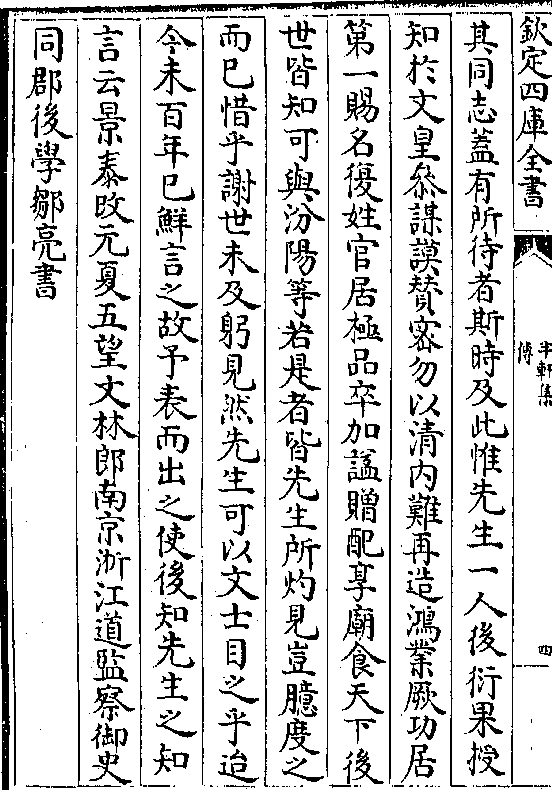 欽定四庫全書
半軒集
傳
四
其同志蓋有所待者斯時及此惟先生一人後衍果授
知於文皇叅謀謨賛宻勿以清内難再造鴻業厥功居
第一賜名復姓官居極品卒加諡贈配享廟食天下後
世皆知可與汾陽等若是者皆先生所灼見豈臆度之
而已惜乎謝世未及躬見然先生可以文士目之乎迨
今未百年已鮮言之故予表而出之使後知先生之知
言云景泰改元夏五望文林郎南京浙江道監察御史
同郡後學鄒亮書